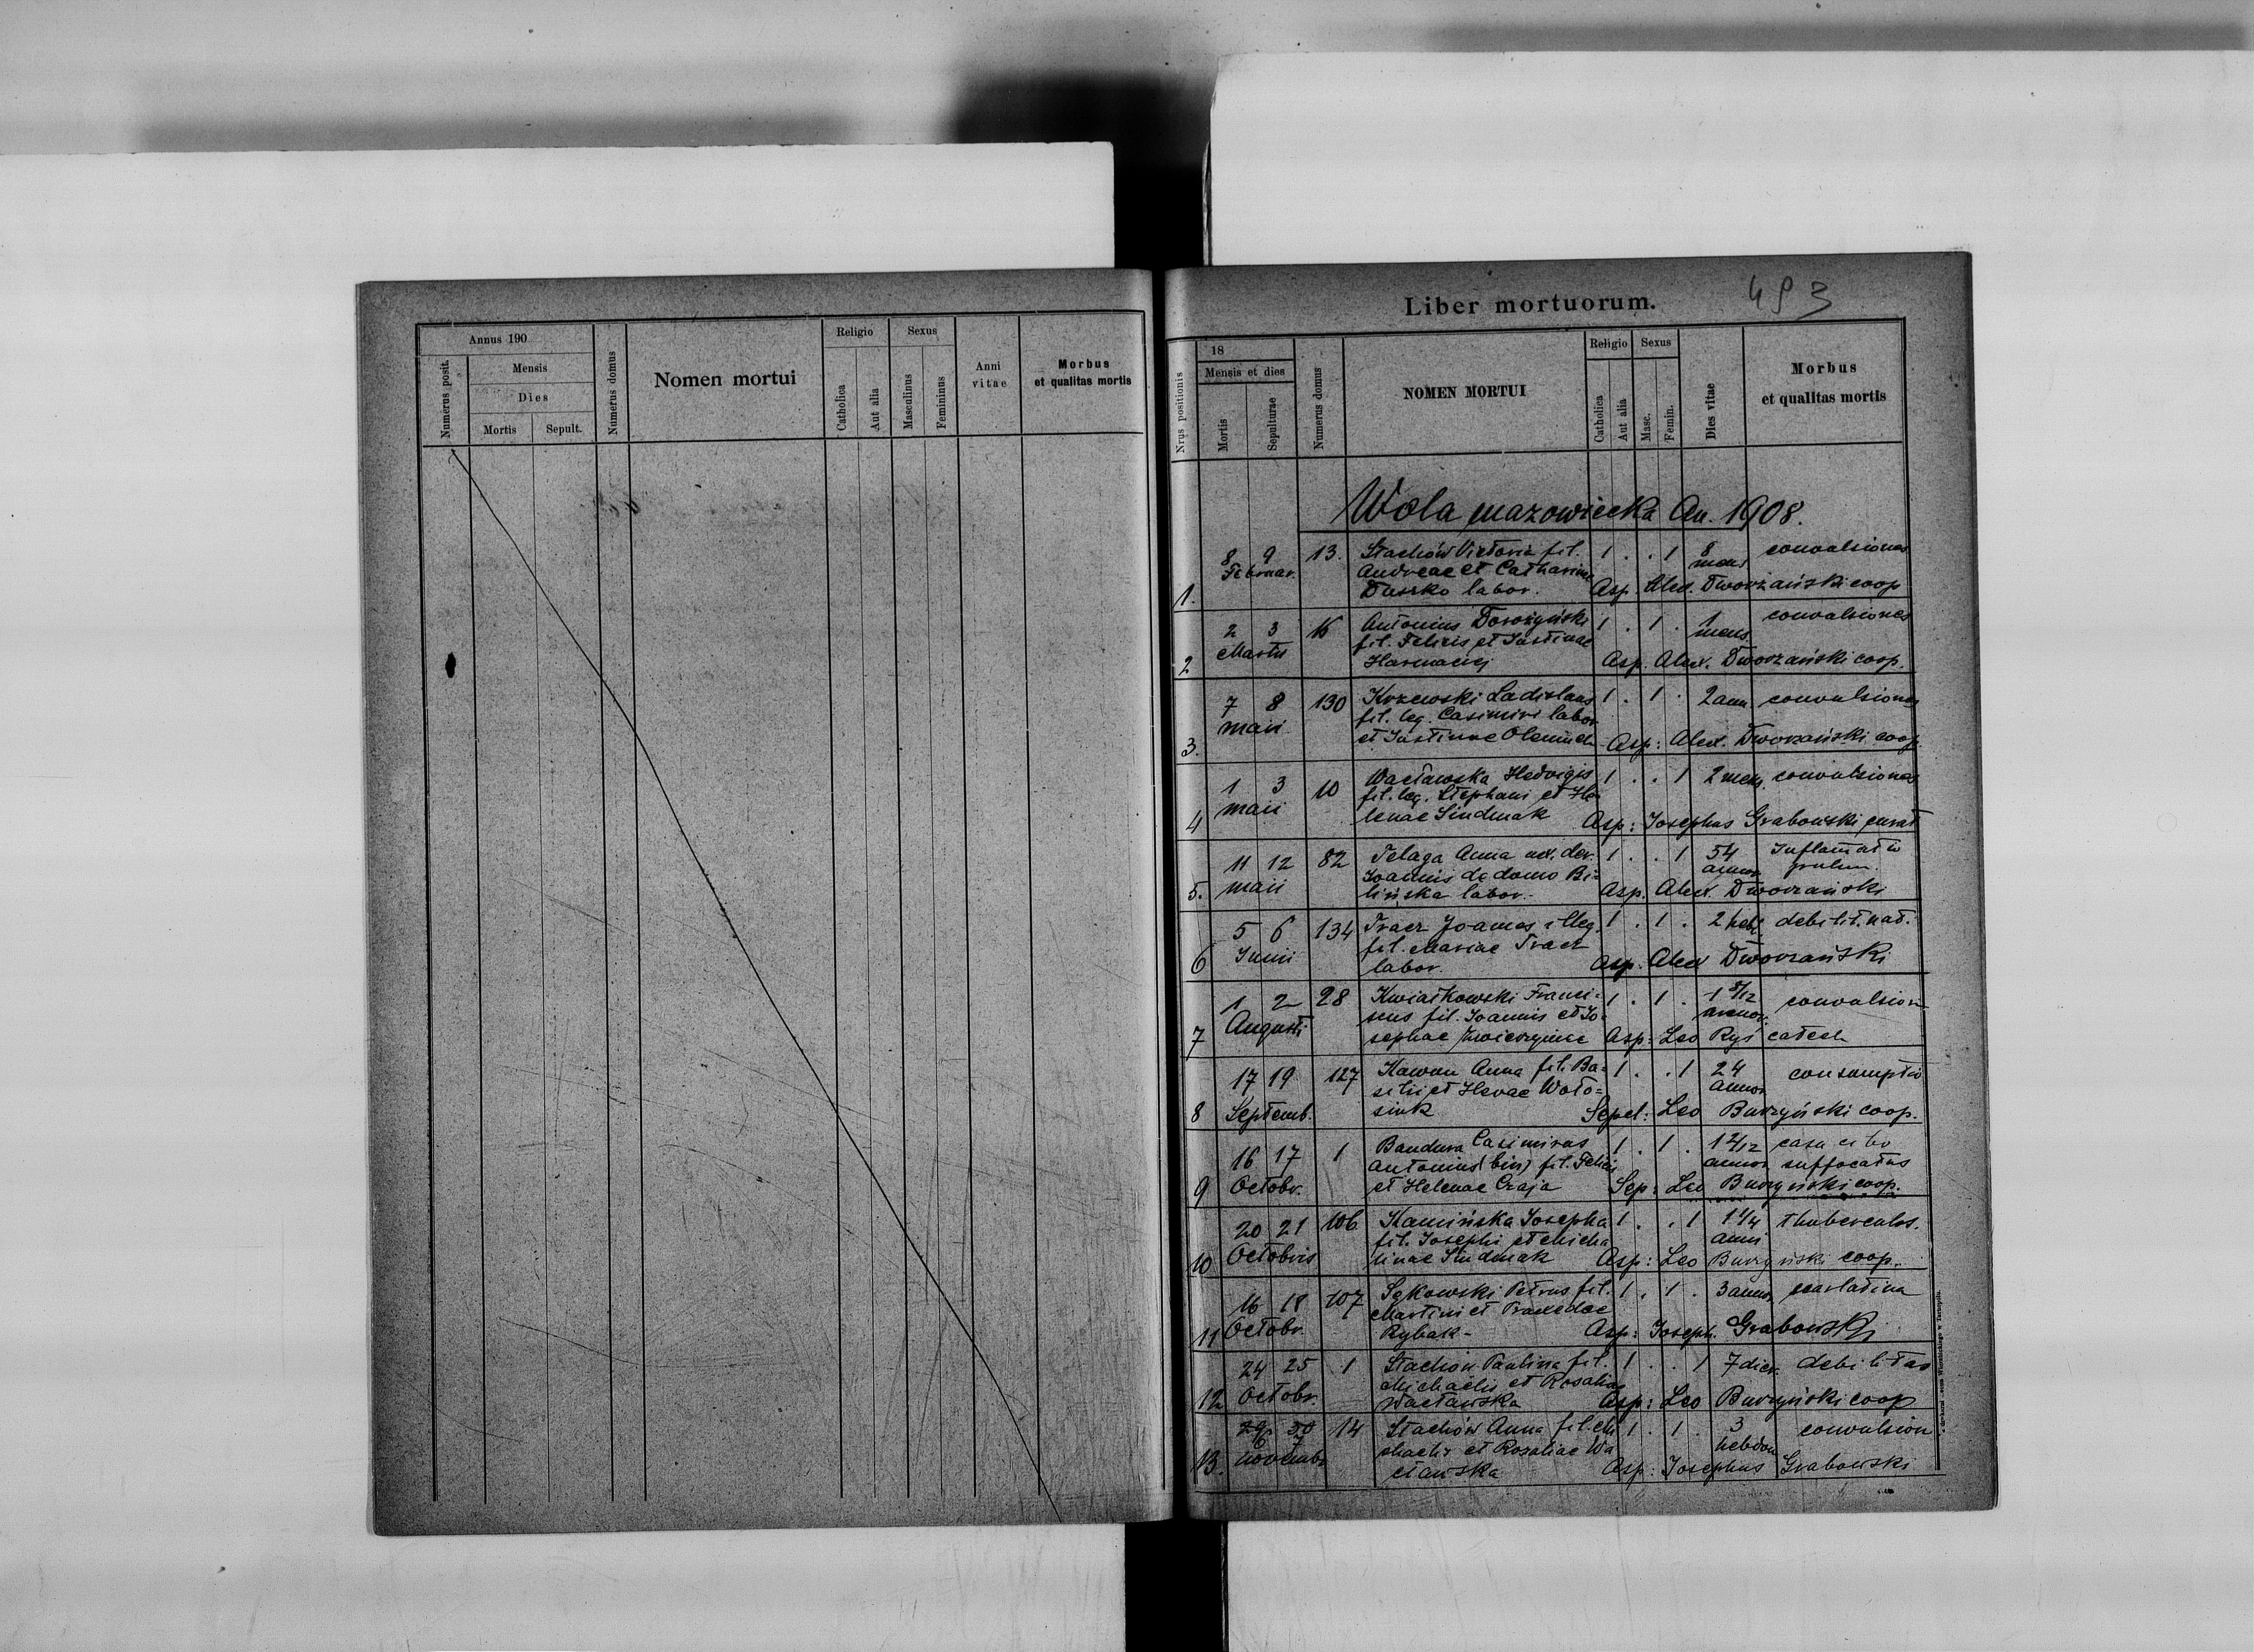 Annus 190
Numerus posit.
Mensis
Dies
Mortis
Sepult.
Numerus domus
Nomen mortui
Religio
Catholica
Aut alia
Sexus
Masculinus
Femininus
Anni
vitae
Morbus
et qualitas mortis
Liber mortuorum.
493
Nrus positionis
18
Mensis et dies
Mortis
Sepulturae
Numerus domus
NOMEN MORTUI
Religio
Catholica
Aut alia
Sexus
Masc.
Femin.
Dies vitae
Morbus
et qualitas mortis
Wola mazowiecka An. 1908.
8 9 13. Stachów Victoria fil. 1 . . 1 8 convulsiones
Februar. Andreae et Catharina mens
1. Duszko labor. Asp. Alex. Dworzański coop
2 3 16 Antonius Dorożyński 1 . 1 . 1 convulsiones
Martii fil. Felicis et Justinae mens.
2 Harmaciej Asp. Alex. Dworzański coop.
7 8 130 Krzewski Ladislaus 1 . 1 . 2 ann convulsiones
maii fil. leg. Casimiri labor
3. et Justinae Asp: Alex. Dworzański coop.
1 3 10 Wacławska Hedvigis 1 . . 1 2 mens. convulsiones
maii fil. leg. Stephani et He
4 lenae Sindmak Asp: Josephus Grabowski curat
11 12 82 Pelaga Anna ux. der. 1 . . 1 54 Inflamatio
maii Joannis de domo Bi= annor pulm.
5. lińska labor. Asp. Alex. Dworzański
5 6 134 Tracz Joannes illeg. 1 . 1 . 2 hebd. debilit. nat.
Junii fil. Mariae Tracz
6 labor. Asp. Alex Dworzański
1 2 28 Kwiatkowski Franci= 1 . 1 . 1 5/12 convulsion
Augusti scus fil. Joannis et Jo= annor.
7 sephae Asp: Leo Ryś catech
17 19 127 Kawun Anna fil. Ba= 1 . . 1 24 consumptio
Septemb. silii et Helenae Woło= annor
8 siuk Sepel: Leo Burzyński coop.
16 17 1 Bandura Casimirus 1 . 1 . 1 2/12 casu cibo
Octobr. Antonius (bin) fil. Felicis annor suffocatus
9 et Helenae Czaja Sep: Leo Burzyński coop.
20 21 106 Kamińska Josepha 1 . . 1 1 1/4 thuberculos.
Octobris fil. Josephi et Micha anni
10 linae Sindmak Asp: Leo Burzyński coop.
16 18 107 Sękowski Petrus fil. 1 . 1 . 3 annor scarlatina
Octobr. Martini et Praxedae
11 Rybak - Asp: Joseph. Grabowski
24 25 1 Stachów Paulina fil. 1 . . 1 7 dier. debilitas
Octobr. Michaëlis et Rosaliae
12 Wacławska Asp: Leo Burzyński coop
29 30 14 Stachów Anna fil. Mi 1 . 1 . 3 convulsion
6 7
novembr chaelis et Rosaliae Wa hebdom
13. cławska Asp: Josephus Grabowski